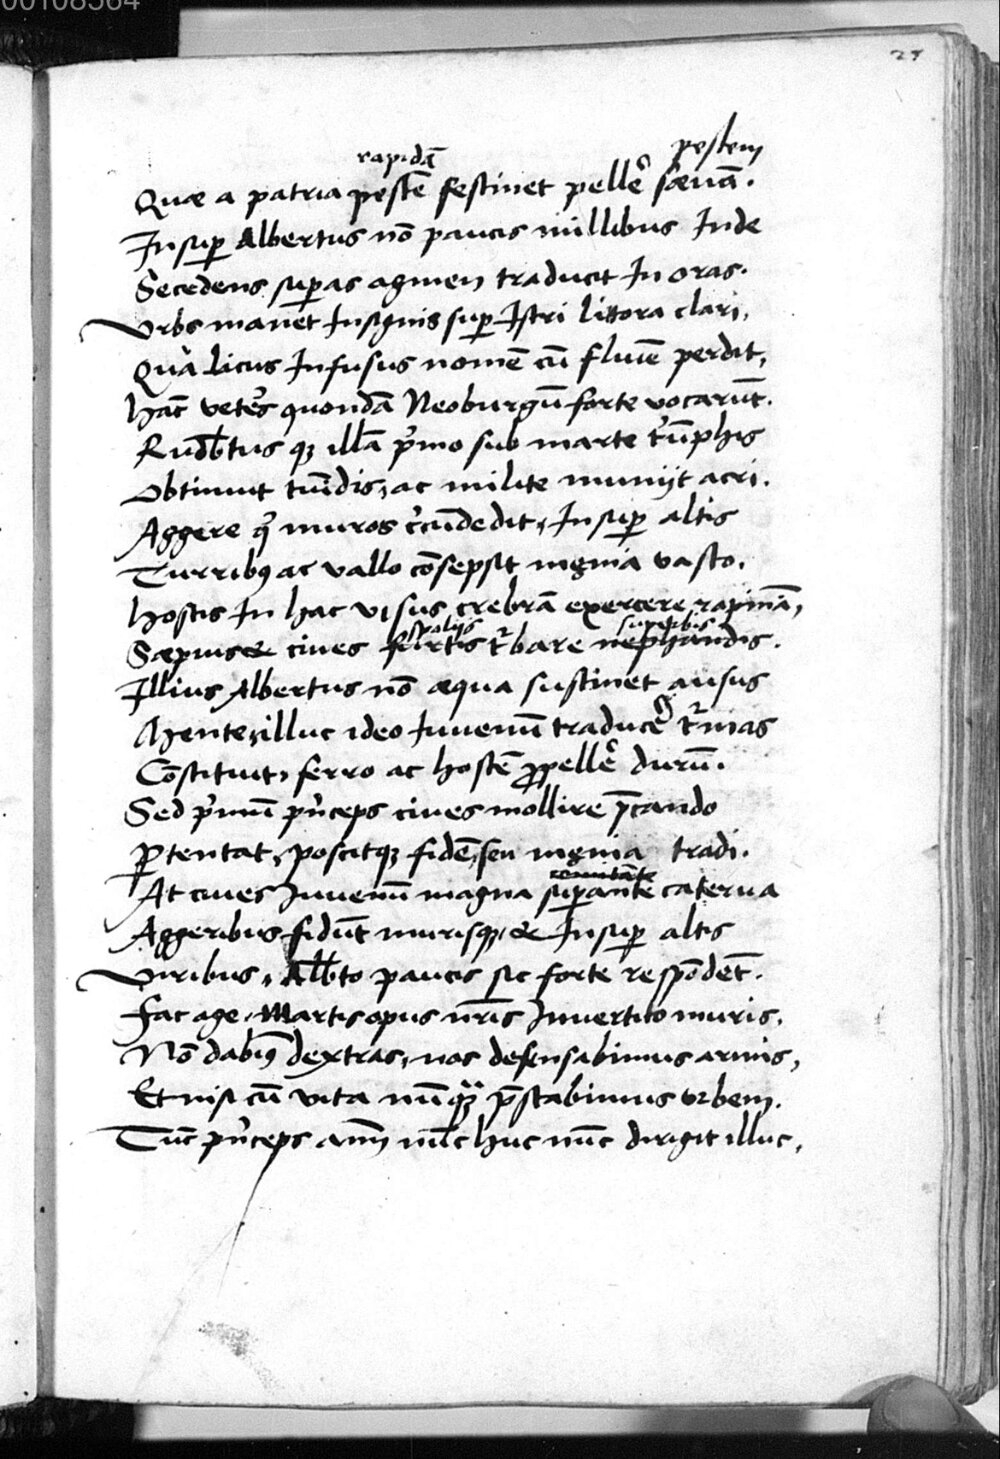 00108564
27
rapidā pestem
Quæ a patria pestē festinet pellē sævā.
Insup Albertus nō paucis millibus Inde
Secedens supas agmen traducit In oras.
Urbs manet Insignis sup Istri littora clari,
Quà licus Infusus nomē cū flumē perdit,
Hāc veteēs quondā Neoburgū forte vocarūt.
Rudbtus qz illā pmo sub marte tūphis
Obtinuit tumdis, ac milite muniit acri.
Aggere qz muros ccūdedit, Insup altis
Turribus ac vallo cōsepsit męnia vasto.
Hostis In hac visus crebrā exercere rapinā,
spolijs superbis
Sæpius & cives furtis tbare nephandis.
Illius Albertus nō æqua sustinet ausus
Mente, illuc ideo Iuvenū traducē tmas
Cōstituit, ferro ac hostē ppellē durū.
Sed pmū pnceps cives mollire pcando
Ptentat, poscitqz fidē, seu męnia tradi.
comitāte
At cives Iuvenū magna supante caterva
Aggeribus fidūt murisqz, & Insup altis
Viribus, Albto paucis sic forte respōdēt.
Fac age, Martis opus nris Invertito muris.
Nō dabim9 dextras, nos defensabimus armis,
Et nisi cū vita nūqz pstabimus urbem.
Tūc pnceps anm nūc huc nūc dirigit illuc,